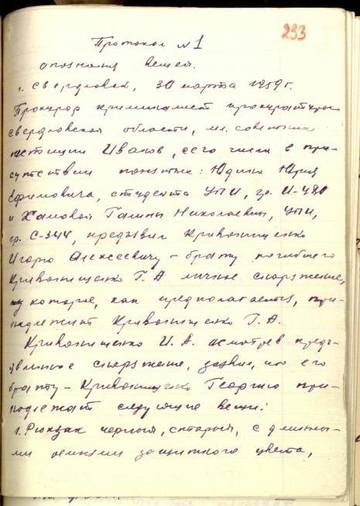 233
Протокол №1
опознания вещей.
г. Свердловск, 30 марта 1959 г.
Прокурор криминалист прокуратуры
Свердловской области, мл. советник
юстиции Иванов, сего числа в при-
сутствии понятых: Юдина Юрия
Ефимовича, студента УПИ, гр. И-480
и Хановой Галины Николаевны, УПИ,
гр. С-344, предъявил Кривонищенко
Игорю Алексеевичу – брату погибшего
Кривонищенко Г.А личное снаряжение,
которые, как предполагается, при-
надлежат Кривонищенко Г.А.
Кривонищенко И.А. осмотрев предъ-
явленное снаряжение, заявил, что его
брату – Кривонищенко Георгию при-
надлежат следующие вещи:
1. Рюкзак черный, старый, с длинны-
ми лямками защитного цвета,